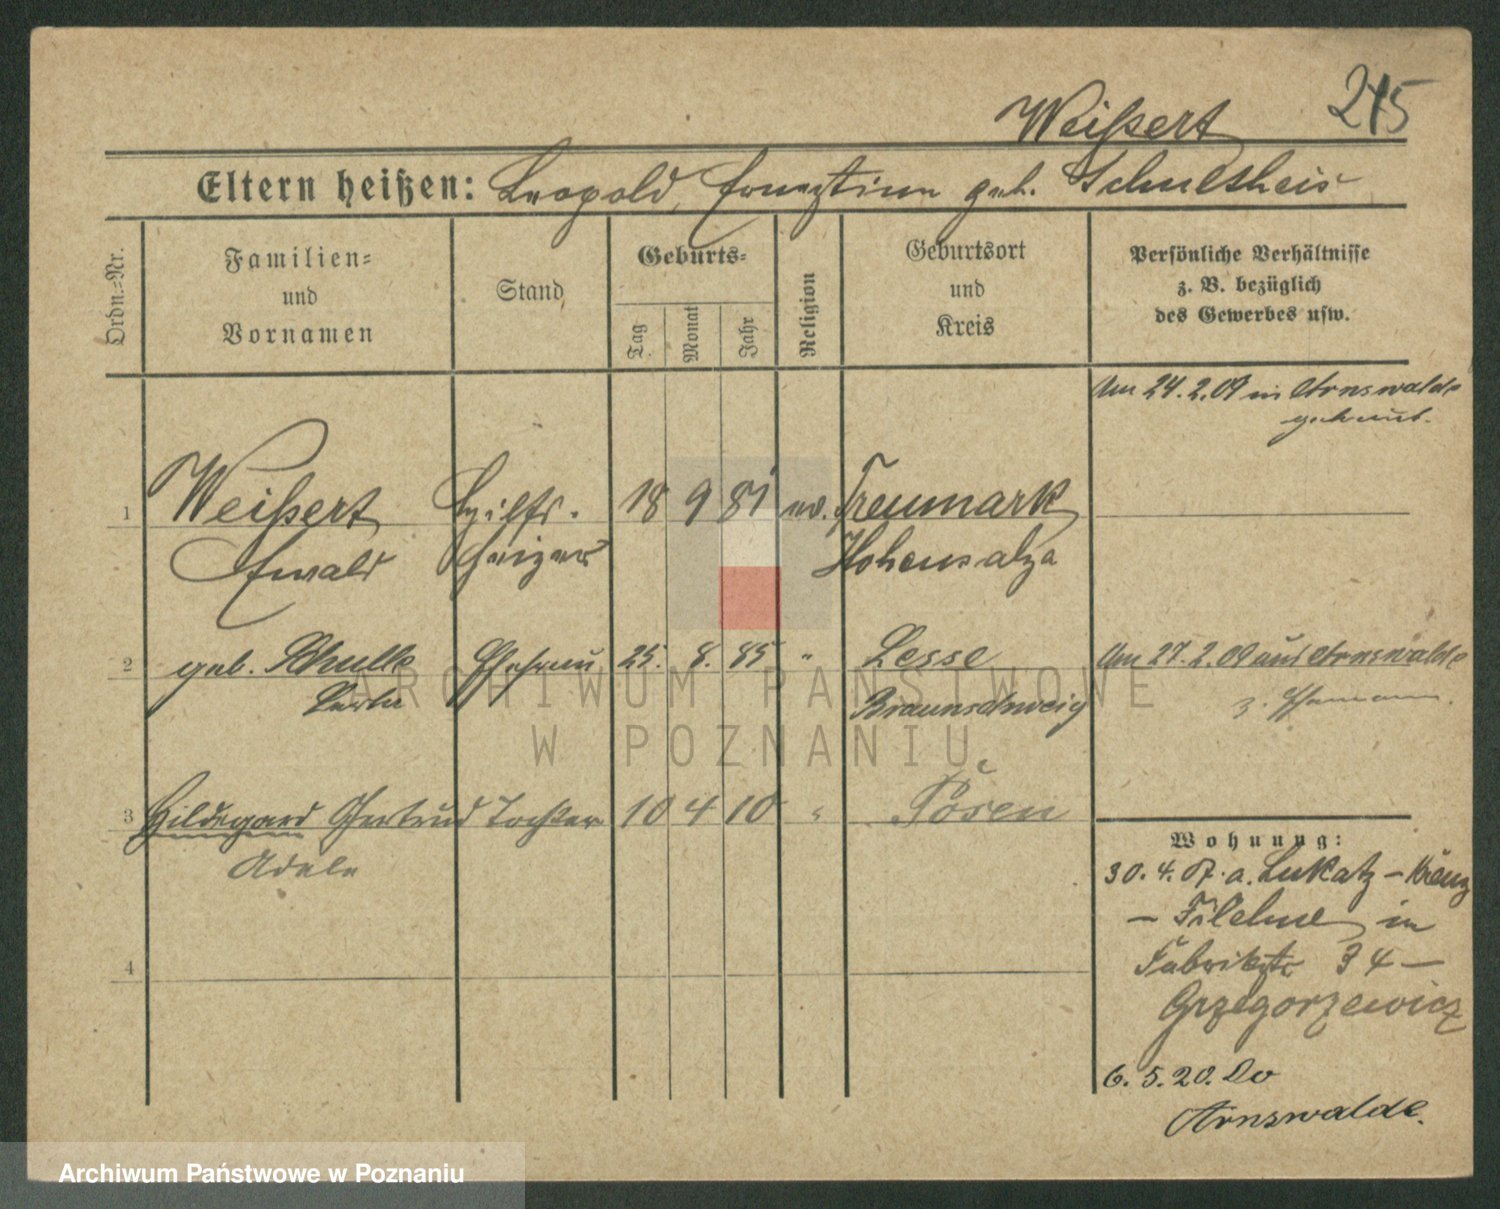 Weißert 215
Eltern heißen: Leopold, Ernestine geb. Schultheis
Ordn.-Nr.
Familien-
und
Vornamen
Stand
Geburts-
Tag
Monat
Jahr
Religion
Geburtsort
und
Kreis
Persönliche Verhältnisse
z. B. bezüglich
des Gewerbes usw.
Am 24.2.09 in Arnswalde
getraut.
1 Weißert Hilfs- 18 9 81 ev. Treumark
Ewald heizer Hohensalza
2 geb. Schulle Ehefrau 25. 8. 85 " Lesse Am 27.2.09 aus Arnswalde
Berta Braunschweig z. Ehemann.
3 Hildegard Gertrud Tochter 10 4 10 " Posen
Adele
Wohnung:
30.4. a. Lukatz - Kreuz
- Filehne in
Fabrikstr 34 -
Grzegorzewicz
4
6.5.20. Do
Arnswalde.
ARCHIWUM PAŃSTWOWE
W POZNANIU
Archiwum Państwowe w Poznaniu